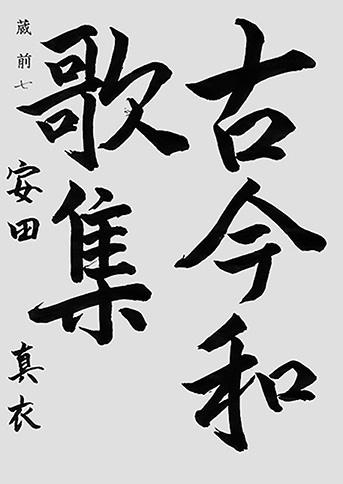 古今和
歌集
蔵前七
安田真衣